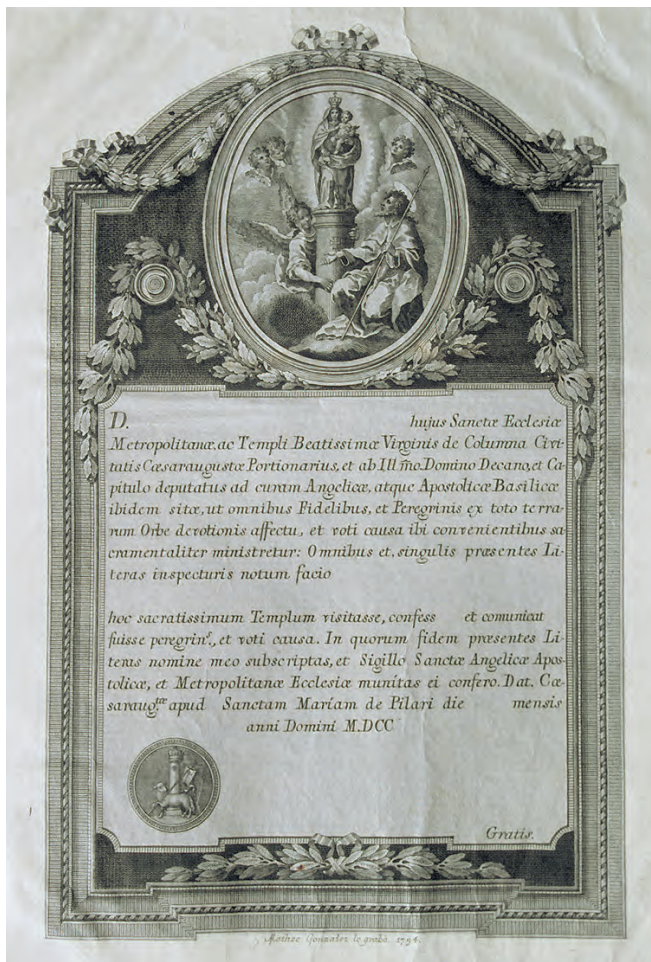 D. hujus Sanctæ Ecclesiæ
Metropolitanæ, ac Templi Beatissimæ Virginis de Columna Civi-
tatis Cæsaraugustæ Portionarius, et ab Ill m̃o. Domino Decano, et Ca-
pitulo deputatus ad curam Angelicæ, atque Apostolicæ Basilicæ
ibidem sitæ, ut omnibus Fidelibus, et Peregrinis ex toto terra-
rum Orbe devotionis affectu, et voti causa ibi convenientibus sa-
cramentaliter ministretur: Omnibus et, singulis præsentes Li-
teras inspecturis notum facio
hoc sacratissimum Templum visitasse, confess et comunicat
fuisse peregrin.ˢ, et voti causa. In quorum fidem præsentes Li-
teras nomine meo subscriptas, et Sigillo Sanctæ Angelicæ Apos-
tolicæ, et Metropolitanæ Ecclesiæ munitas ei confero. Dat. Cæ-
saraug.ᵗᵃᵉ apud Sanctam Mariam de Pilari die mensis
anni Domini M.DCC
Gratis.
Matheo Gonzalez lo grabó. 1794.